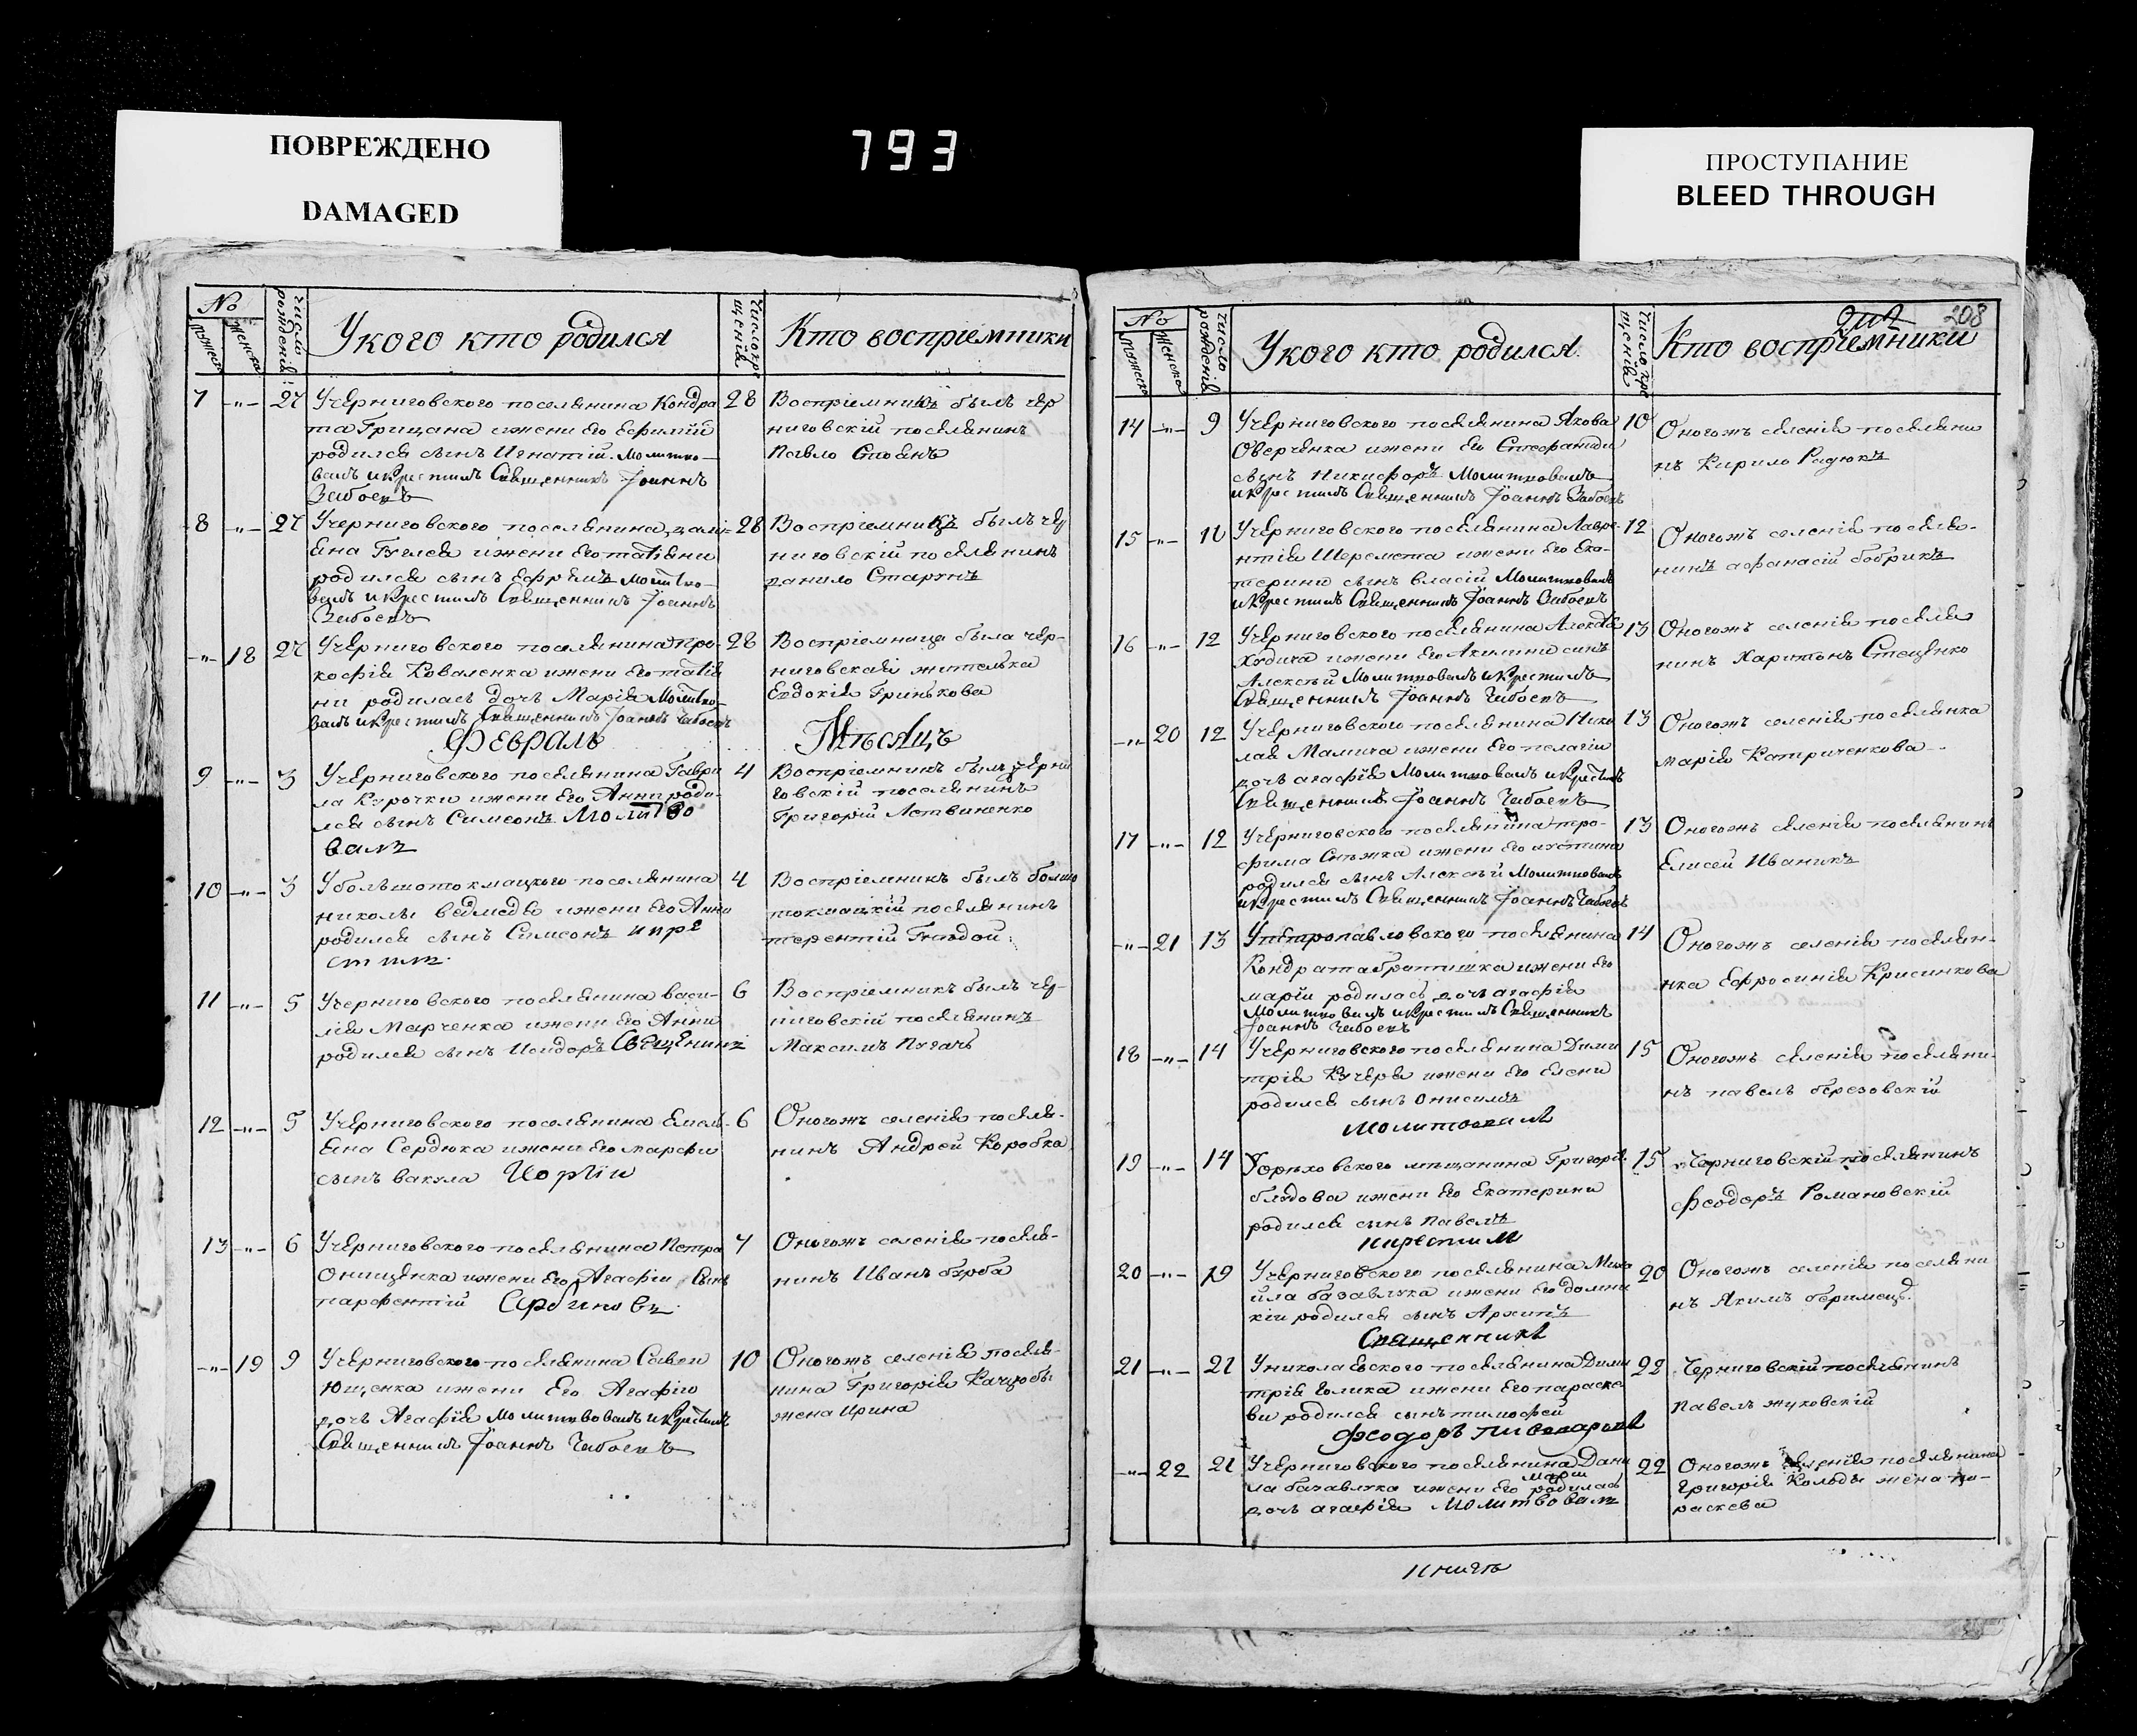 ПОВРЕЖДЕНО
DAMAGED
793
ПРОСТУПАНИЕ
BLEED THROUGH
№
мужеск
женска
число рожденія
Укого кто родился
число кре щенія
Кто восприемники
7 -"- 27
Учерниговского поселянина Кондра
та Грицана ижени Его Ефимій
родился сынъ Игнатій. Молитво-
валъ икрестилъ Священникъ Іоаннъ
28
Восприемникъ былъ чер
ниговскій поселянинъ
Павло Стоянъ
8 -"- 27
Учерниговского поселянина
ижени Его татіяни
родился сынъ Ефремъ Молитво-
валъ икрестилъ Священникъ Іоаннъ
28
Восприемникъ былъ чер
ниговскій поселянинъ
данило Старунъ
-"- 18 27
Учерниговского поселянина про-
кофія Коваленка ижени Его татія
ни родилась дочь Марія Молитво-
валъ икрестилъ Священникъ Іоаннъ
28
Восприемница была чер-
ниговская жителька
Евдокія Гринькова
Февраль
Мѣсяцъ
9 -"- 3
Учерниговского поселянина Гаври
ла Курочки ижени Его Анни роди-
лся сынъ Симеонъ Молитво
валъ
4
Восприемникъ былъ черни
говскій поселянинъ
Григорій Литвиненко
10 -"- 3
Убольшотокмацкого поселянина
николы ведмедя ижени Его Анни
родился сынъ Симеонъ икре
стилъ
4
Восприемникъ былъ большо
токмацкій поселянинъ
терентій Гнедой
11 -"- 5
Учерниговского поселянина васи-
лія Марченка ижени Его Анни
родился сынъ Исидоръ Священникъ
6
Восприемникъ былъ чер-
ниговскій поселянинъ
Максимъ Пугачь
12 -"- 5
Учерниговского поселянина Емель-
яна Сердюка ижени Его марфи
сынъ вакула
6
Оногожъ селенія поселя-
нинъ Андрей Коробка
13 -"- 6
Учерниговского поселянина Петра
Онищенка ижени Его Агафіи Сынъ
парфентій Сербиновъ
7
Оногожъ селенія поселя-
нинъ Иванъ бурба
-"- 19 9
Учерниговского поселянина Савви
Ющенка ижени Его Агафіи
дочь Агафія Молитвовалъ икрестилъ
Священникъ Іоаннъ
10
Оногожъ селенія поселя-
нина Григорія
жена Ирина
208
№
мужеско
женско
число рожденія
Укого кто родился
число кре щенія
Кто восприемники
14 -"- 9
Учерниговского поселянина Якова
Оверченка ижени Его Стефаниди
сынъ Никифоръ Молитвовалъ
икрестилъ Священникъ Іоаннъ
10
Оногожъ селенія поселяни
нъ Кирило Радюкъ
15 -"- 11
Учерниговского поселянина Лавре-
нтія Шеремета ижени Его Ека-
терини сынъ власій Молитвовалъ
икрестилъ Священникъ Іоаннъ
12
Оногожъ селенія поселя-
нинъ афанасій бобрикъ
16 -"- 12
Учерниговского поселянина
ижени Его Акилини синъ
Алексѣй Молитвовалъ икрестилъ
Священникъ Іоаннъ
13
Оногожъ селенія поселя
нинъ Харитонъ Стеценко
-"- 20 12
Учерниговского поселянина Нико
лая Малича ижени Его пелагіи
дочь агафія Молитвовалъ икрестилъ
Священникъ Іоаннъ
13
Оногожъ селенія поселянка
марія Катриченкова
17 -"- 12
Учерниговского поселянина тро-
фима Снѣжка ижени Его иустини
родился сынъ Алексѣй Молитвовалъ
икрестилъ Священникъ Іоаннъ
13
Оногожъ селенія поселянинъ
Елисей Иваникъ
-"- 21 13
Упетропавловского поселянина
Кондрата братишка ижени Его
маріи родилась дочь агафія
Молитвовалъ икрестилъ Священникъ
Іоаннъ
14
Оногожъ селенія поселян-
нка Ефросинія Крисинкова
18 -"- 14
Учерниговского поселянина Дими
трія Кучера ижени Его Елени
родился сынъ Онисимъ
Молитвовалъ
15
Оногожъ селенія поселяни-
нъ павелъ березовскій
19 -"- 14
Уорѣховского мещанина Григорія
ижени Его Екатерини
родился сынъ павелъ
икрестил
15
Черниговскій поселянинъ
Феодоръ Романовскій
20 -"- 19
Учерниговского поселянина Миха
йла базавлука ижени Его домни
кіи родился сынъ Архипъ
Священникъ
20
Оногожъ селенія поселяни
нъ Якимъ
21 -"- 21
Униколаевского поселянина Дими
трія Голика ижени Его параске
ви родился сынъ тимофей
Феодоръ
22
Черниговскій поселянинъ
павелъ жуковскій
-"- 22 21
Учерниговского поселянина Дани
ла базавлука ижени Его маріи родилась
дочь агафія Молитвовалъ
22
Оногожъ селенія поселянина
Григорія Кольбы жена па-
раскева